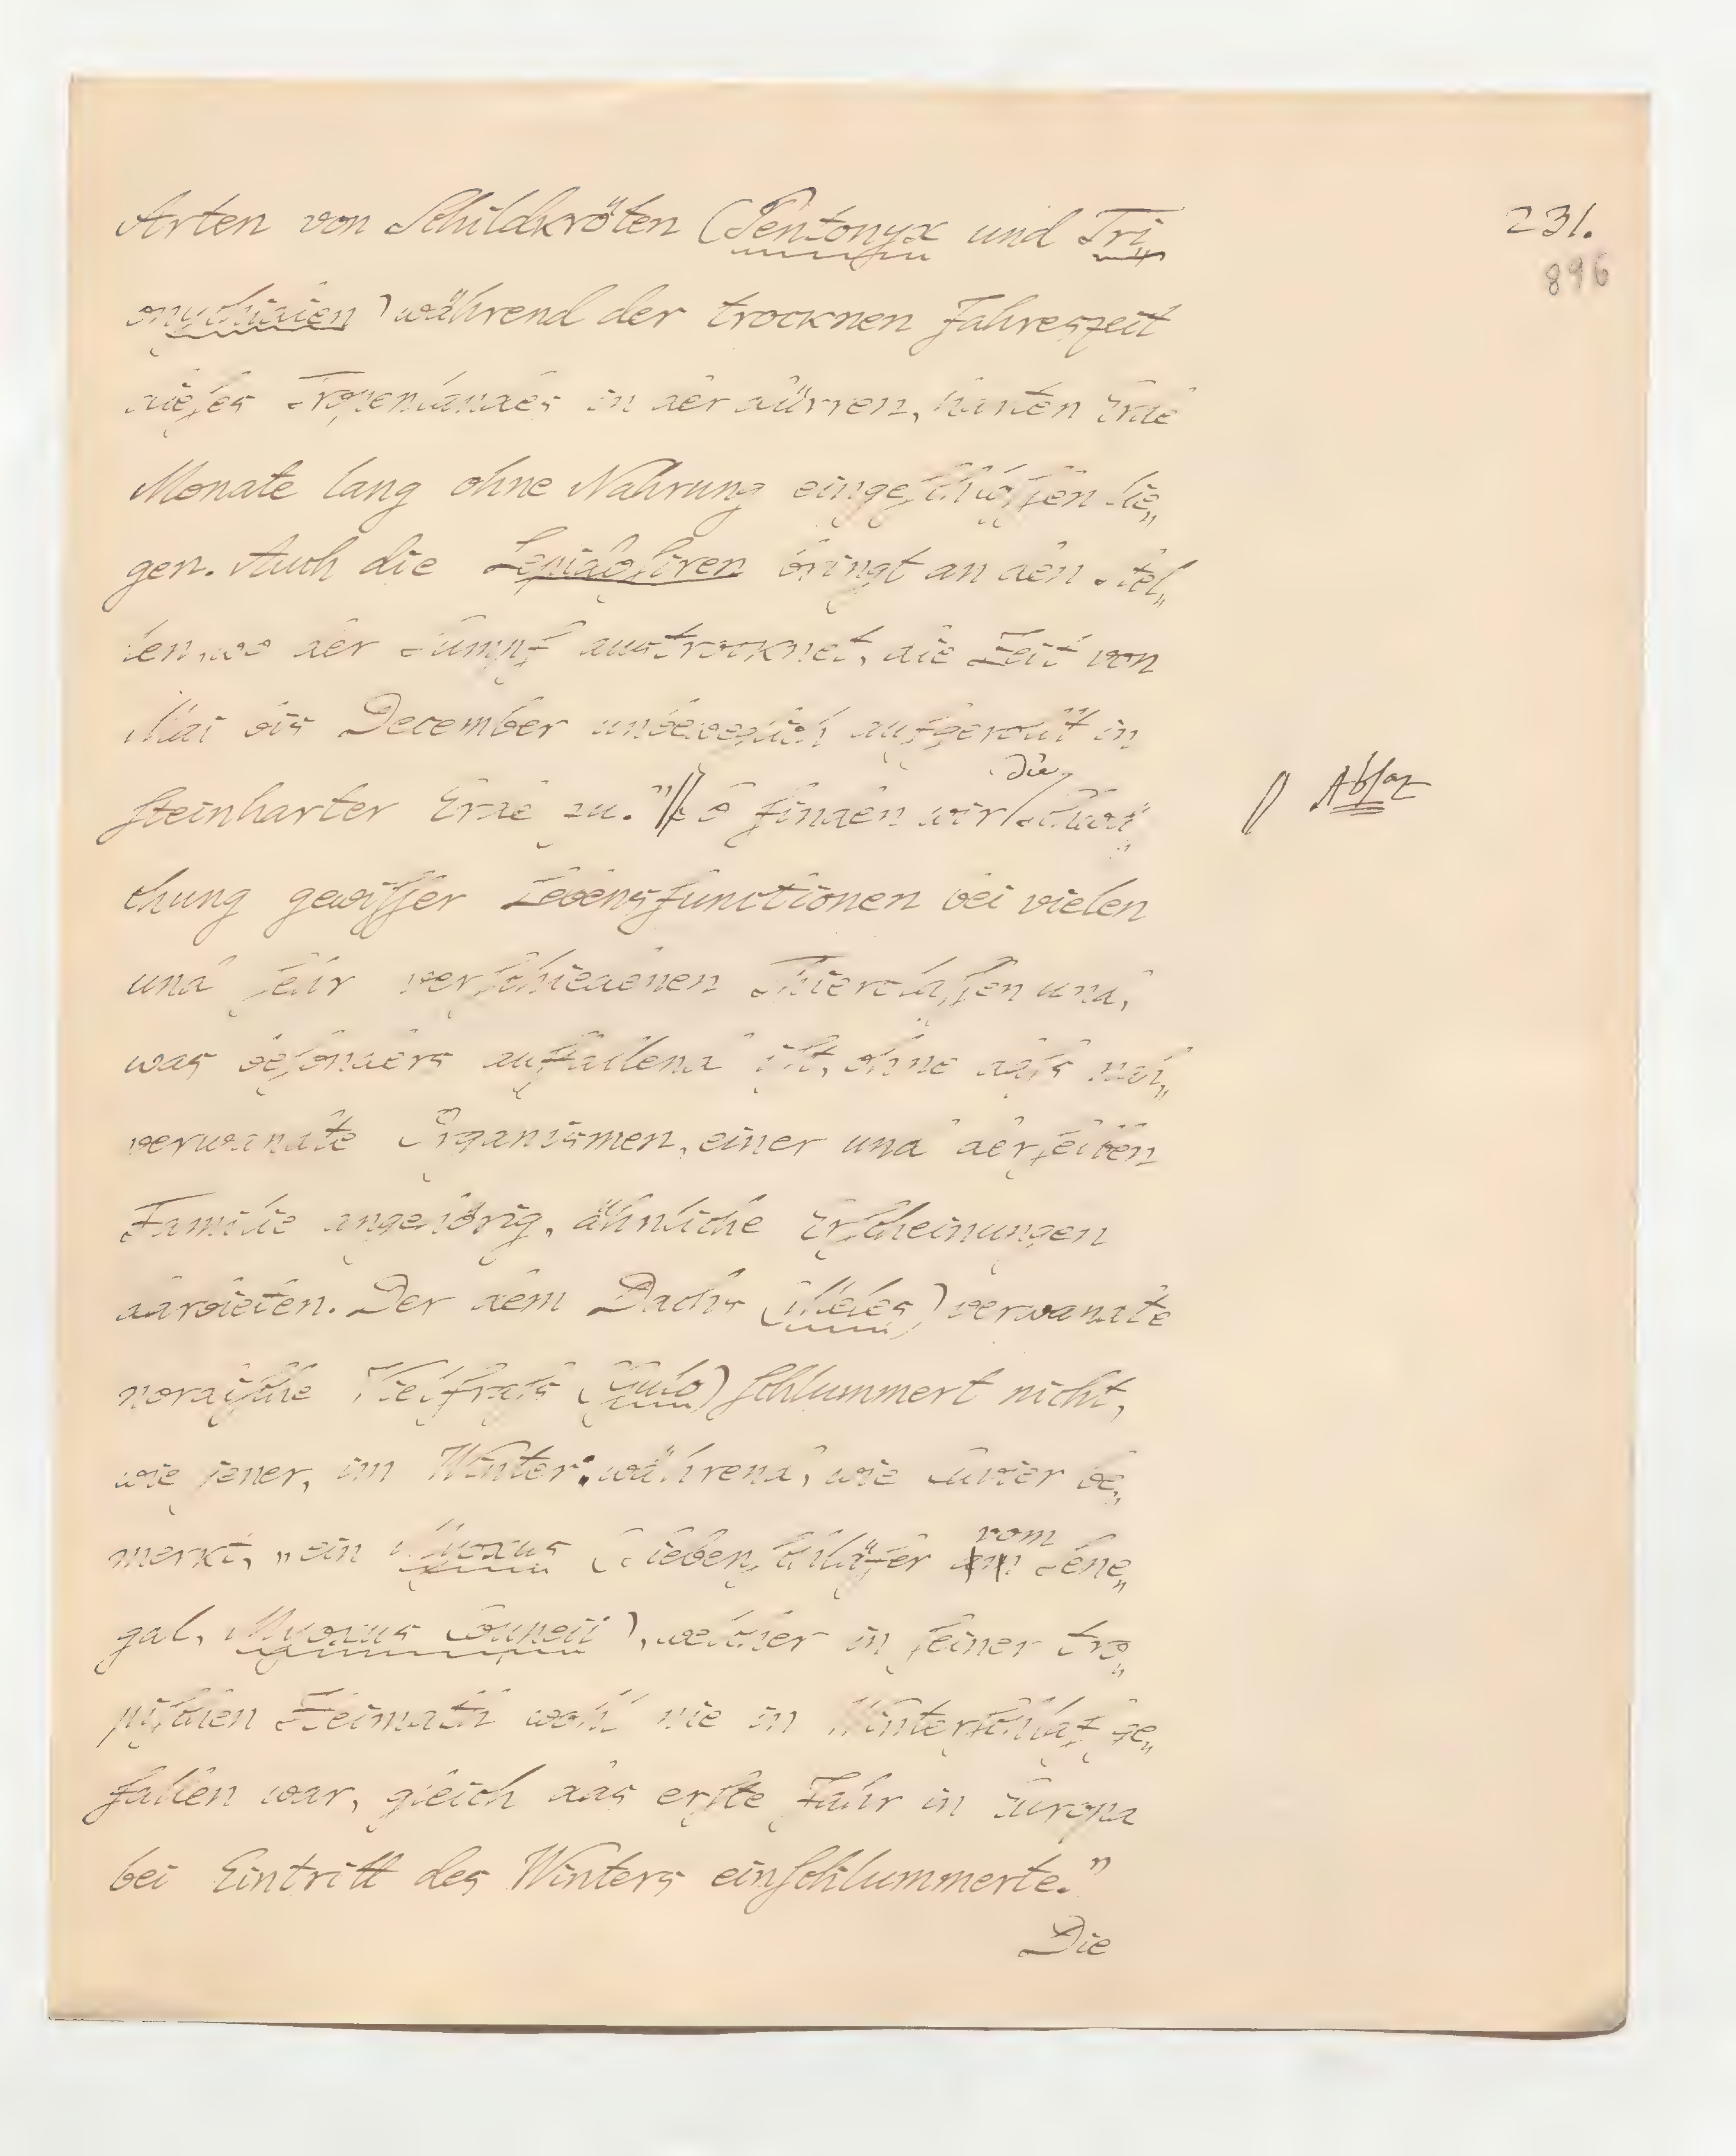 231.
896
Arten von Schildkröten (Pentonyx und Tri„
onychiden) während der trocknen Jahreszeit
dieses Tropenlandes in der dürren, harten Erde
Monate lang ohne Nahrung eingeschlossen lie„
gen. Auch die Lepidosiren bringt an den Stel„
len, wo der Sumpf austrocknet, die Zeit von
Mai bis December unbeweglich aufgerollt in
steinharter Erde zu." So finden wir die Schwä„
chung gewisser Lebensfunctionen bei vielen
und sehr verschiedenen Thierclassen und,
was besonders auffallend ist, ohne dass nah„
verwandte Organismen, einer und derselben
Familie angehörig, ähnliche Erscheinungen
darbieten. Der dem Dachs (Meles) verwandte
nordische Vielfrass (Gulo) schlummert nicht,
wie jener, im Winter: während, wie Cuvier be„
merkt, „ein Myoxus (Siebenschläfer vom Sene„
gal, Myoxus Coupeii), welcher in seiner tro„
pischen Heimath wohl nie in Winterschlaf ge„
fallen war, gleich das erste Jahr in Europa
bei Eintritt des Winters einschlummerte."
Die
Absaz